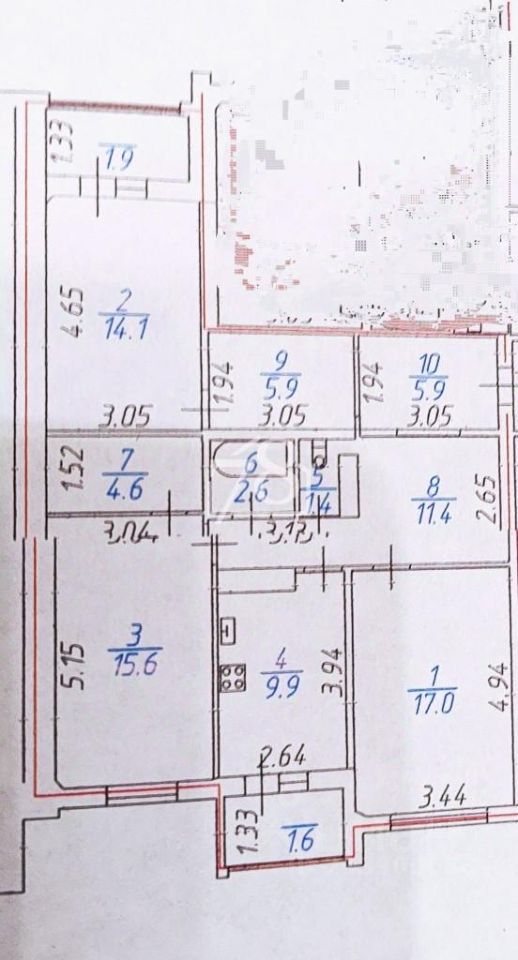 1.33
1.9
4.65
2
14.1
3.05
1.94
9
5.9
3.05
1.94
10
5.9
3.05
1.52
7
4.6
3.04
6
2.6
5
1.4
3.13
8
11.4
2.65
5.15
3
15.6
4
9.9
3.94
2.64
1
17.0
4.94
3.44
1.33
1.6